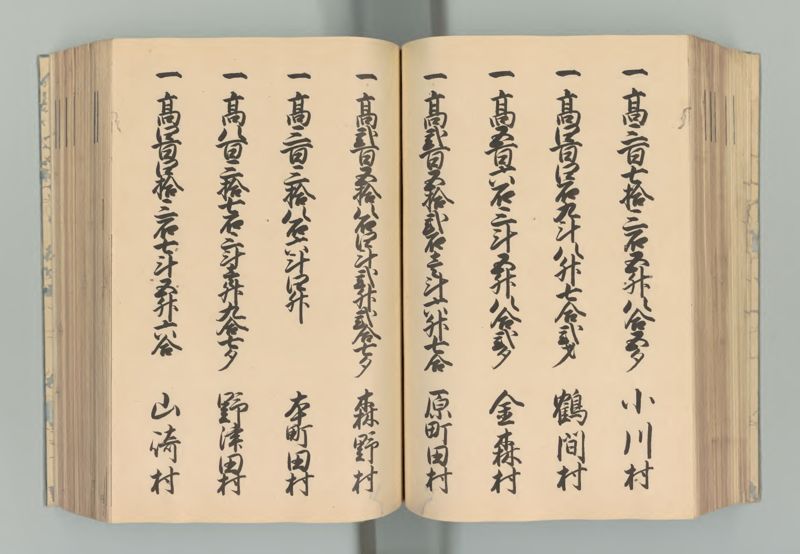 一 高三百七拾三石五升八合五夕 小川村
一 高四百四石九斗八升七合弐夕 鶴間村
一 高五百六石三斗五升八合弐夕 金森村
一 高弐百五拾弐石壱斗六升七合 原町田村
一 高弐百五拾八石四斗弐升弐合七夕 森野村
一 高三百三拾八石六斗四升 本町田村
一 高八百三拾七石三斗壱升九合七夕 野津田村
一 高四百四拾三石七斗五升六合 山崎村